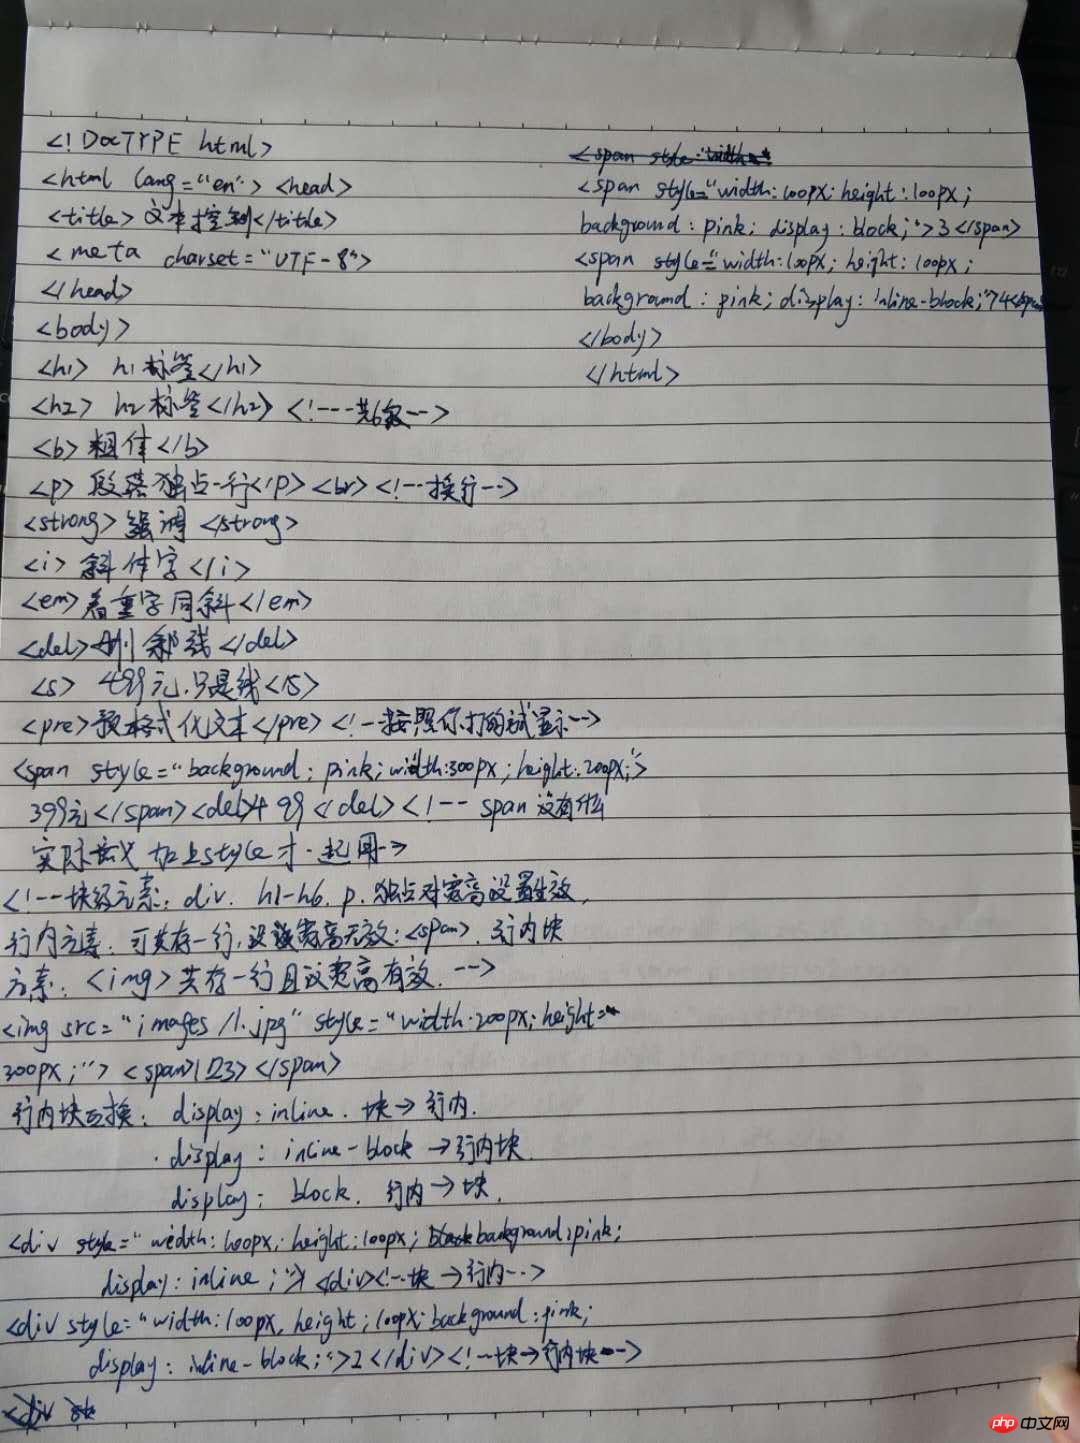 <!DOCTYPE html>
<html lang="en"> <head>
<title>文本控制</title>
<meta charset="UTF-8">
</head>
<body>
<h1> h1标签</h1>
<h2> h2标签</h2> <!---共6级-->
<b>粗体</b>
<p> 段落独占一行</p> <br> <!--换行-->
<strong>强调</strong>
<i>斜体字</i>
<em>着重字同斜</em>
<del>删除线</del>
<s> 499元.只是线</s>
<pre>预格式化文本</pre> <!-按照你打的试显示-->
<span style="background: pink; width:300px; height:200px;">
399元</span><del>499</del> <!-- span 没有什么
实际意义 加上style才 起用->
<!--块级元素: div. h1-h6. p. 独占对宽高设置生效,
行内元素. 可共存一行,设宽高无效:<span>. 行内块
元素: <img>共存一行且设宽高有效. -->
<img src="images/1.jpg" style="width:200px; height:
300px;"> <span>123></span>
行内块互换: display: inline. 块→行内.
display: inline-block →行内块.
display: block. 行内→块.
<div style="width:100px; height:100px; background:pink;
display: inline;">1</div><!--块→行内-->
<div style="width:100px, height;100px; background:pink;
display: inline-block;">2</div><!--块→行内块-->
<div st
<span style="width:
<span style="width:100px; height:100px;
background: pink; display: block;">3</span>
<span style="width:100px; height:100px;
background: pink; display: inline-block;">4</span
</body>
</html>
php 中文网